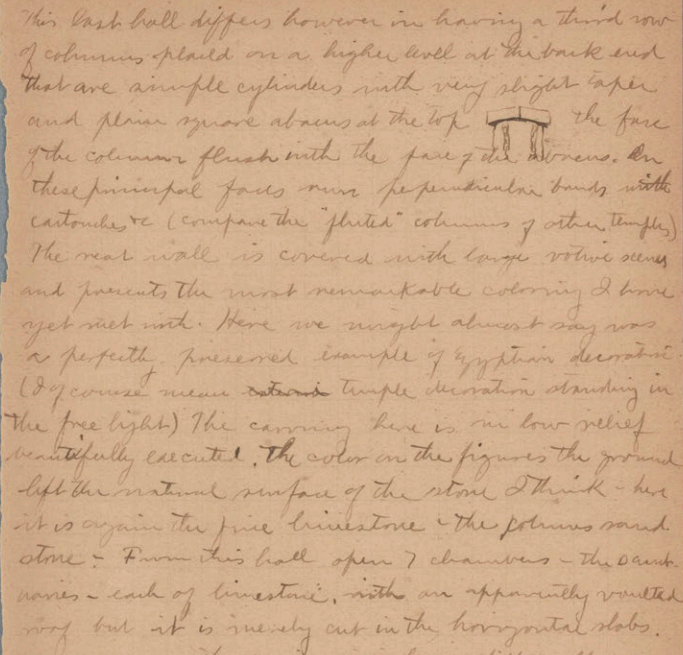 This last hall differs however in having a third row
of columns placed on a higher level at the back end
that are simple cylinders with very slight taper
and plain square abacus at the top the face
of the column flush with the face of the abacus. On
these principal faces run perpendicular bands with
cartouches &c (compare the "fluted" columns of other temples)
The rear wall is covered with large votive scenes
and presents the most remarkable coloring I have
yet met with. Here we might almost say was
a perfectly preserved example of Egyptian decoration
(I of course mean temple decoration standing in
the free light) The carving here is in low relief
beautifully executed. The color on the figures the ground
left the natural surface of the stone I think - here
it is again the fine limestone - the columns sand
stone - From this hall open 7 chambers - the sanct-
uaries - each of limestone, with an apparently vaulted
roof but it is merely cut in the horizontal slabs.